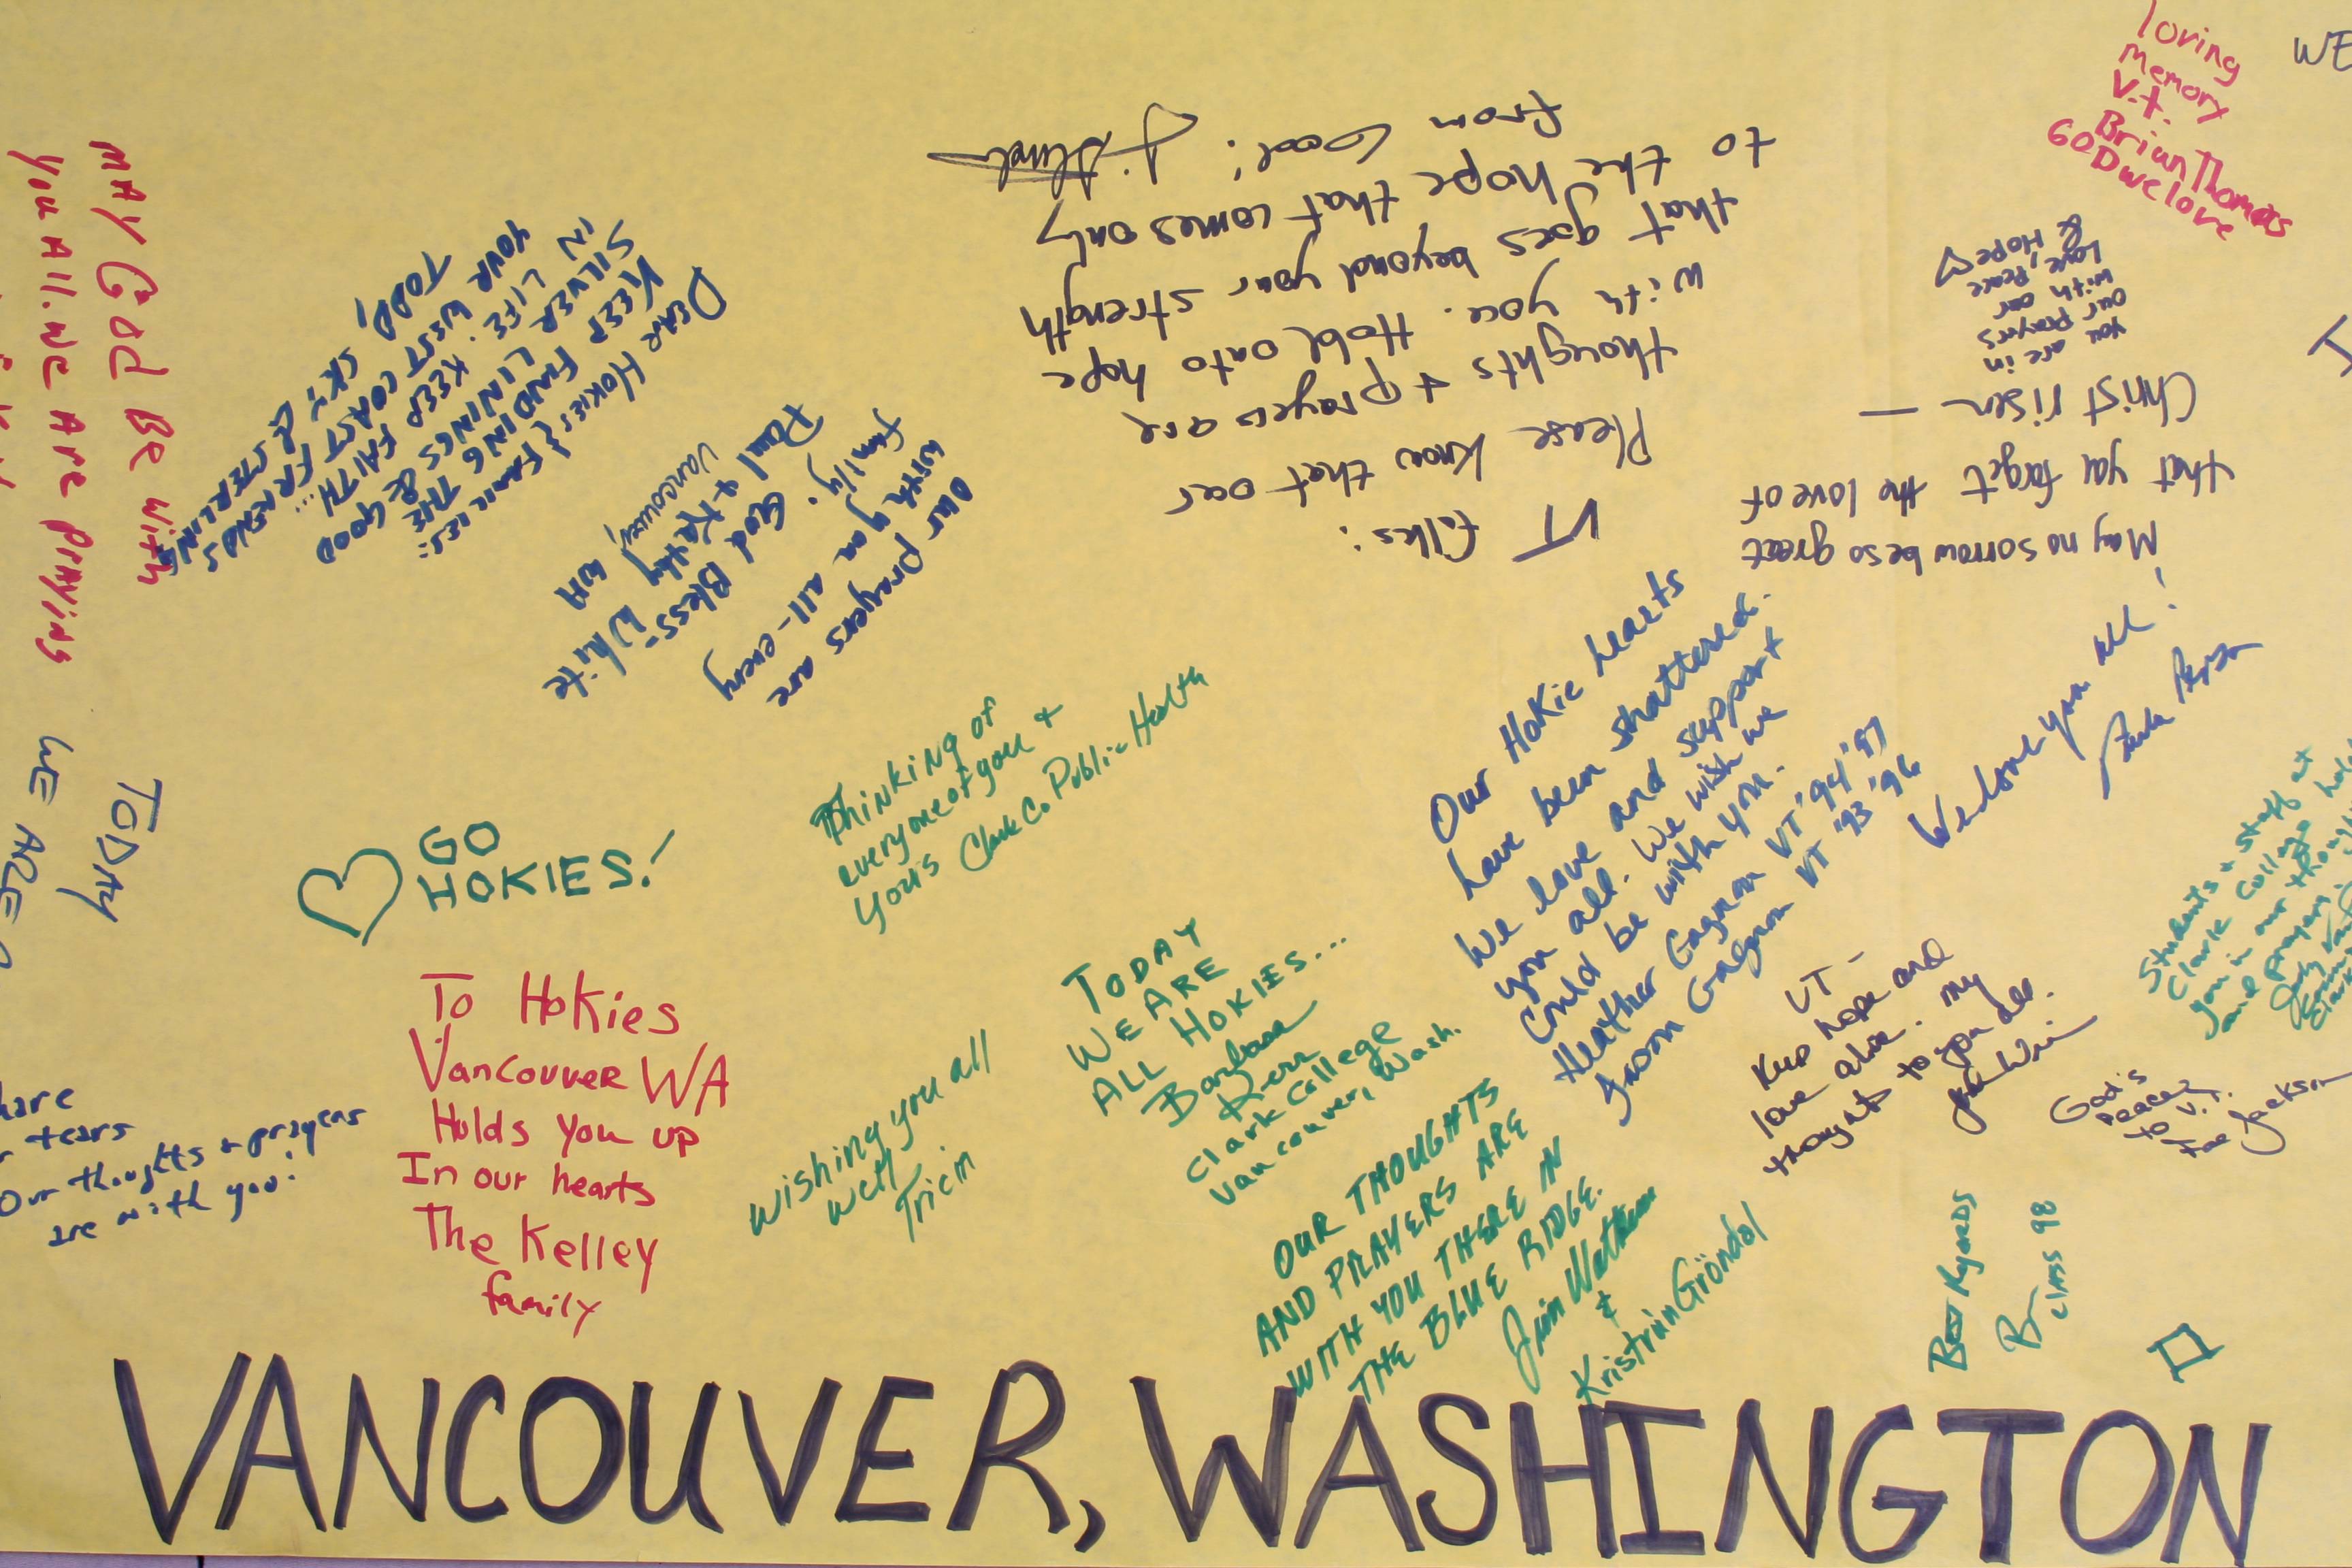 loving
memory
V.t.
Brian Thomas
GOD we love
WE
MAY God Be with
you All. we Are Praying
DEAR HOKIES & FAMILIES:
KEEP FINDING THE
SILVER LININGS
IN LIFE. KEEP FAITH...
YOUR WEST COAST FRIENDS
TODD,
Our prayers are
with you all - every
family. God Bless-
Paul & Kathy White
Vancouver, WA
VT folks:
Please know that our
thoughts + prayers are
with you. Hold onto hope
that goes beyond your strength
to the hope that comes only
from God!
May no sorrow be so great
that you forget the love of
Christ risen —
You are in
our prayers
with our
love, Peace
& Hope
TODAY
WE ARE
GO
HOKIES!
Thinking of
everyone of you +
yours Clark Co Public Health
Our Hokie hearts
have been shattered.
We love and support
you all. We wish we
could be with you.
Heather Gagnon VT '94 '97
Jason Gagnon VT '93 '96
We love you all!
Students & Staff at
Clark College hold
you in our thoughts
and prayers.
To Hokies
Vancouver WA
Holds you up
In our hearts
The Kelley
family
tears
Our thoughts + prayers
are with you!
wishing you all
well
Tricia
TODAY
WE ARE
ALL HOKIES...
Barbara
Kerr
Clark College
Vancouver, Wash.
VT-
Keep hope and
love alive. My
thoughts to you all.
God's
peace
to V.T.
Jackson
OUR THOUGHTS
AND PRAYERS ARE
WITH YOU THERE IN
THE BLUE RIDGE.
&
Kristrún Gröndal
Best Regards
class 98
VANCOUVER, WASHINGTON